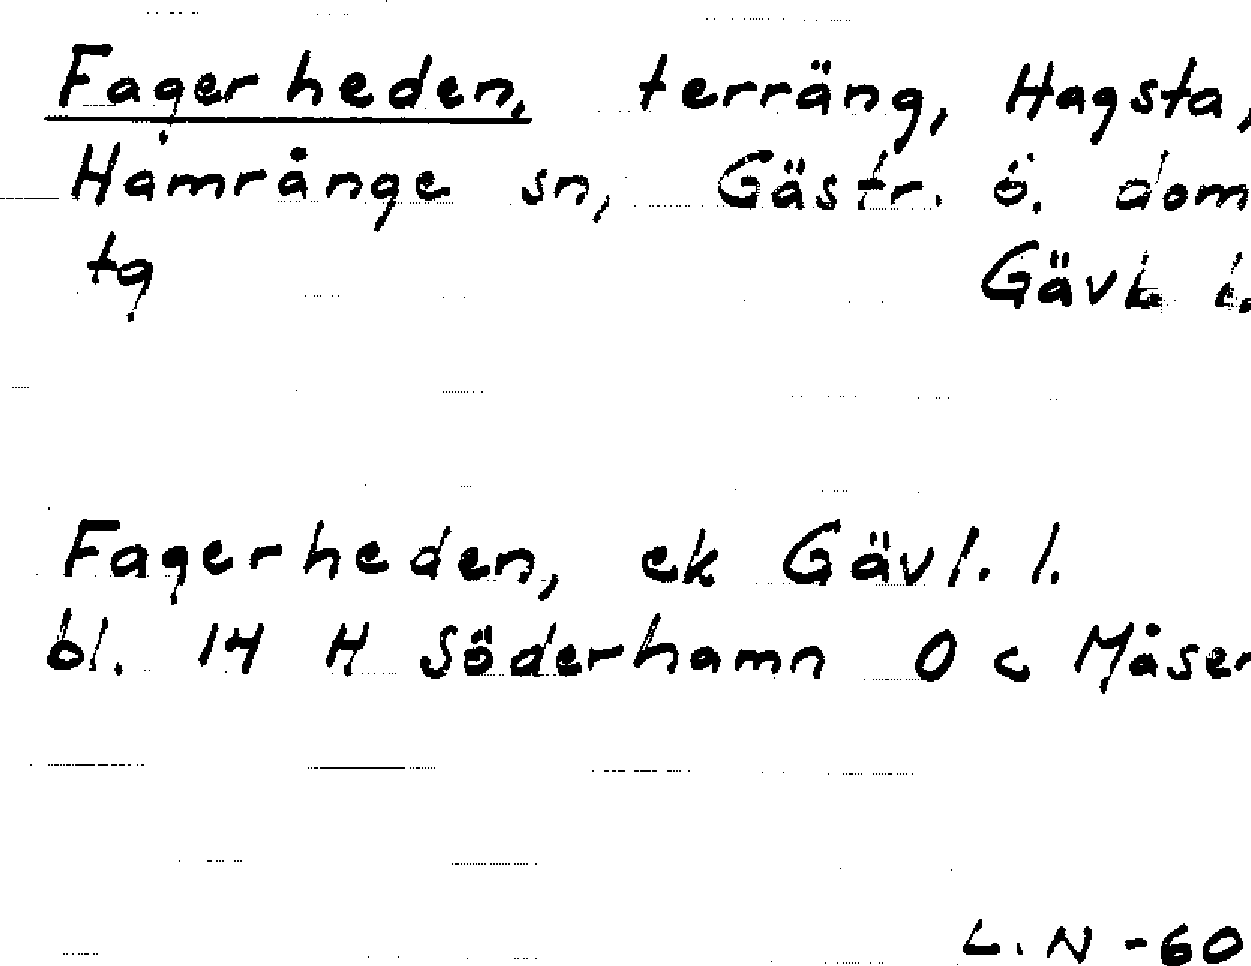 Fagerheden, terräng, Hagsta,
Hamrånge sn, Gästr. ö. dom
tg Gävl. l.
Fagerheden, ek Gävl. l.
bl. 14 H Söderhamn O c Måser
L. N -60